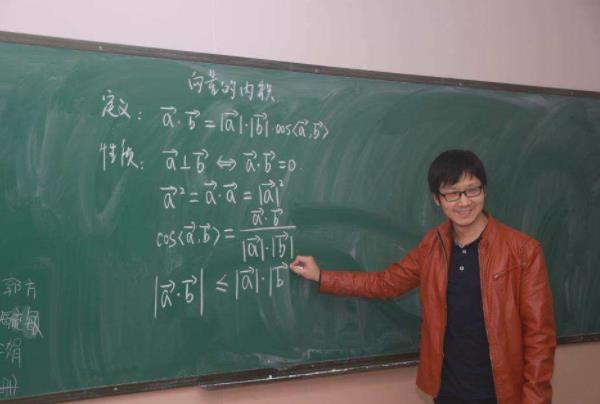 向量的内积
定义: $\vec{a}\cdot\vec{b}=|\vec{a}|\cdot|\vec{b}|\cdot\cos\langle\vec{a},\vec{b}\rangle$
性质: $\vec{a}\perp\vec{b}\Leftrightarrow\vec{a}\cdot\vec{b}=0$
$\vec{a}^2=\vec{a}\cdot\vec{a}=|\vec{a}|^2$
$\cos\langle\vec{a},\vec{b}\rangle=\frac{\vec{a}\cdot\vec{b}}{|\vec{a}|\cdot|\vec{b}|}$
$|\vec{a}\cdot\vec{b}|\leq|\vec{a}|\cdot|\vec{b}$
郭方
娟